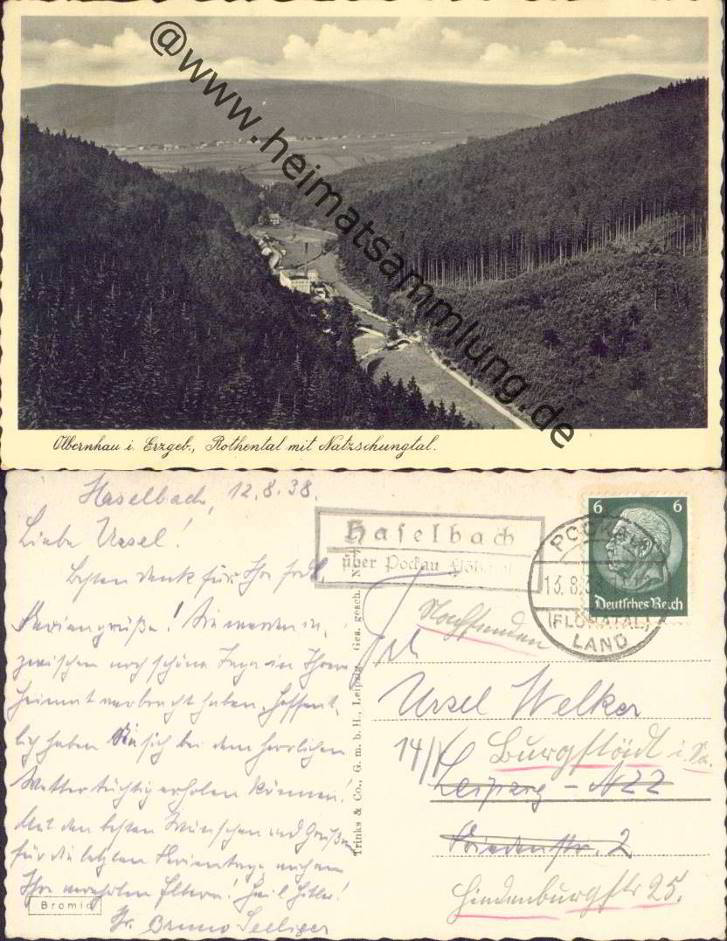 @www.heimatsammlung.de
Olbernhau i. Erzgeb., Rothental mit Natzschungtal.
Haselbach, 12.8.38.
Liebe Ursel!
Besten Dank für Ihre frdl.
Feriengrüße! Sie werden in-
zwischen noch schöne Tage in Ihrer
Heimat verbracht haben. Hoffent-
lich haben Sie sich bei dem herrlichen
Wetter tüchtig erholen können!
Mit den besten Wünschen und Grüßen
für die letzten Ferientage auch an
Ihre verehrten Eltern! Heil Hitler!
Ihr Bruno Seeliger
Bromid
Trinks & Co., G. m. b. H., Leipzig Ges. gesch. N
Haselbach
über Pockau
POCKAU
13.8.
(FLÖHATAL)
LAND
6 6
Deutsches Reich
Nachsenden
Frl.
Ursel Welker
14/8 Burgstädt i. Sa.
Leipzig - N22
2
Hindenburgstr 25.